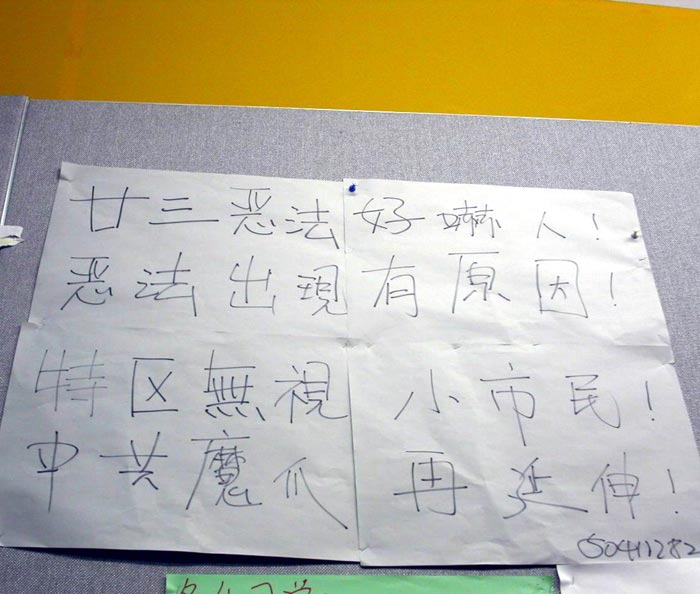 廿三恶法好嚇人！
恶法出現有原因！
特区無視小市民！
中共魔爪再延伸！
050411282